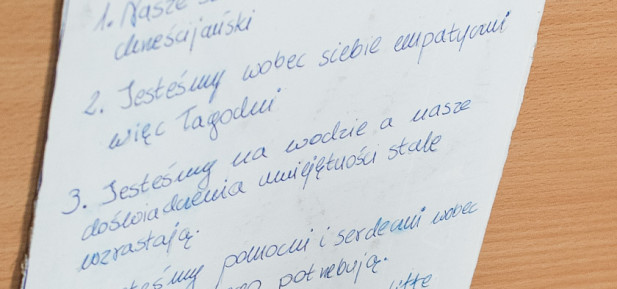 1. Nasze
chrześcijański
2. Jesteśmy wobec siebie empatyczni
więc łagodni
3. Jesteśmy na wodzie a nasze
doświadczenia umiejętności stale
wzrastają.
pomocni i serdeczni wobec
potrzebują.